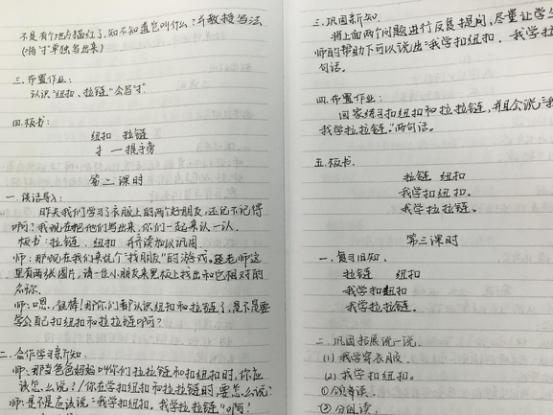 不是有个地方描红了,知不知道它叫什么?并教授写法
(将"扌"单独写出来)
三.布置作业:
认识"纽扣、拉链"会写"扌".
四.板书:
纽扣 拉链
扌—提手旁
第二课时
一.谈话导入:
昨天我们学习了衣服上的两个好朋友,还记不记得
啊?我现在把他们写出来,你们一起来认一认.
板书:拉链、纽扣 并带读加以巩固
师:那现在我们来玩个"找朋友"的游戏。老师这
里有两张图片,请一位小朋友来黑板上找出和它相对的
名称.
师:嗯,真棒!那你们都认识纽扣和拉链了,是不是要
学会自己扣纽扣和拉拉链啊?
二.合作学习新知:
师:那当爸爸妈妈叫你们拉拉链和扣纽扣时,你应
该怎么说?/你在学扣纽扣和拉拉链时要怎么说?
师:是不是应该说"我学扣纽扣。我学拉拉链"啊!
三.巩固新知.
将上面两个问题进行反复提问,尽量让学生
师的帮助下可以说出"我学扣纽扣。我学拉
句话。
四.布置作业:
回家练习扣纽扣和拉拉链,并且会说"我
我学拉拉链."两句话。
五.板书.
拉链 纽扣
我学扣纽扣.
我学拉拉链。
第三课时
一.复习旧知.
拉链 纽扣
我学扣纽扣
我学拉拉链。
二.巩固拓展说一说.
(1)我学穿衣服
(2)我学扣纽扣.
①领读.
②分组读